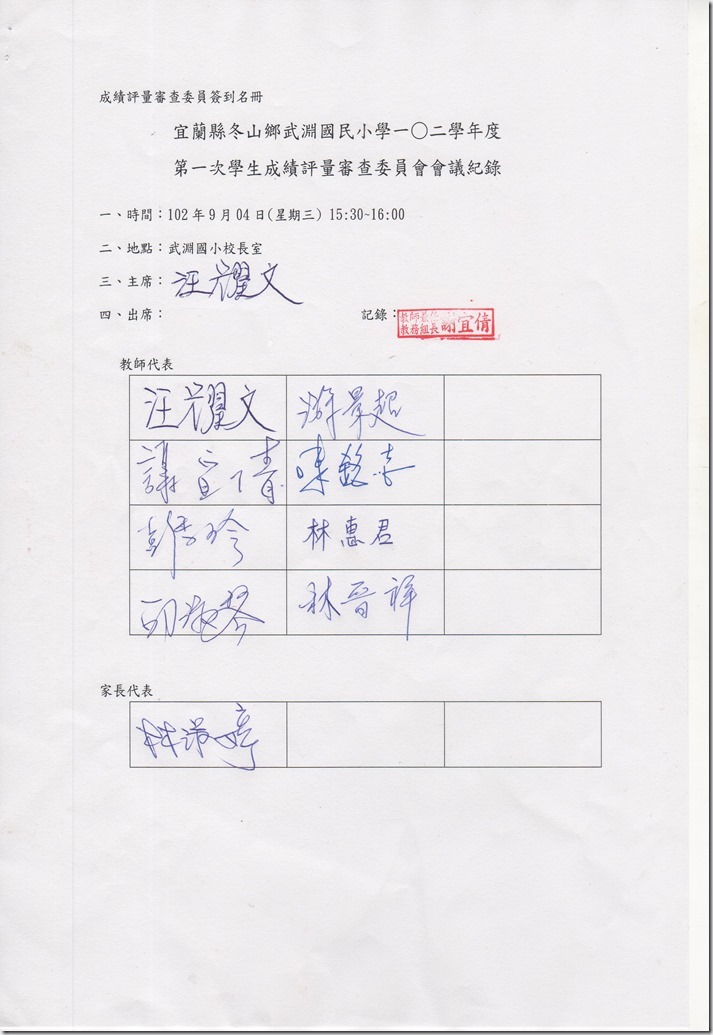 成績評量審查委員簽到名冊
宜蘭縣冬山鄉武淵國民小學一〇二學年度
第一次學生成績評量審查委員會會議紀錄
一、時間：102年9月04日(星期三) 15:30~16:00
二、地點：武淵國小校長室
三、主席：汪耀文
四、出席： 記錄：
教師兼任
教務組長 謝宜倩
教師代表
汪耀文 游景超
謝宜倩 陳毅
林惠君
邱淑琴 林晉祥
家長代表
林淑婷